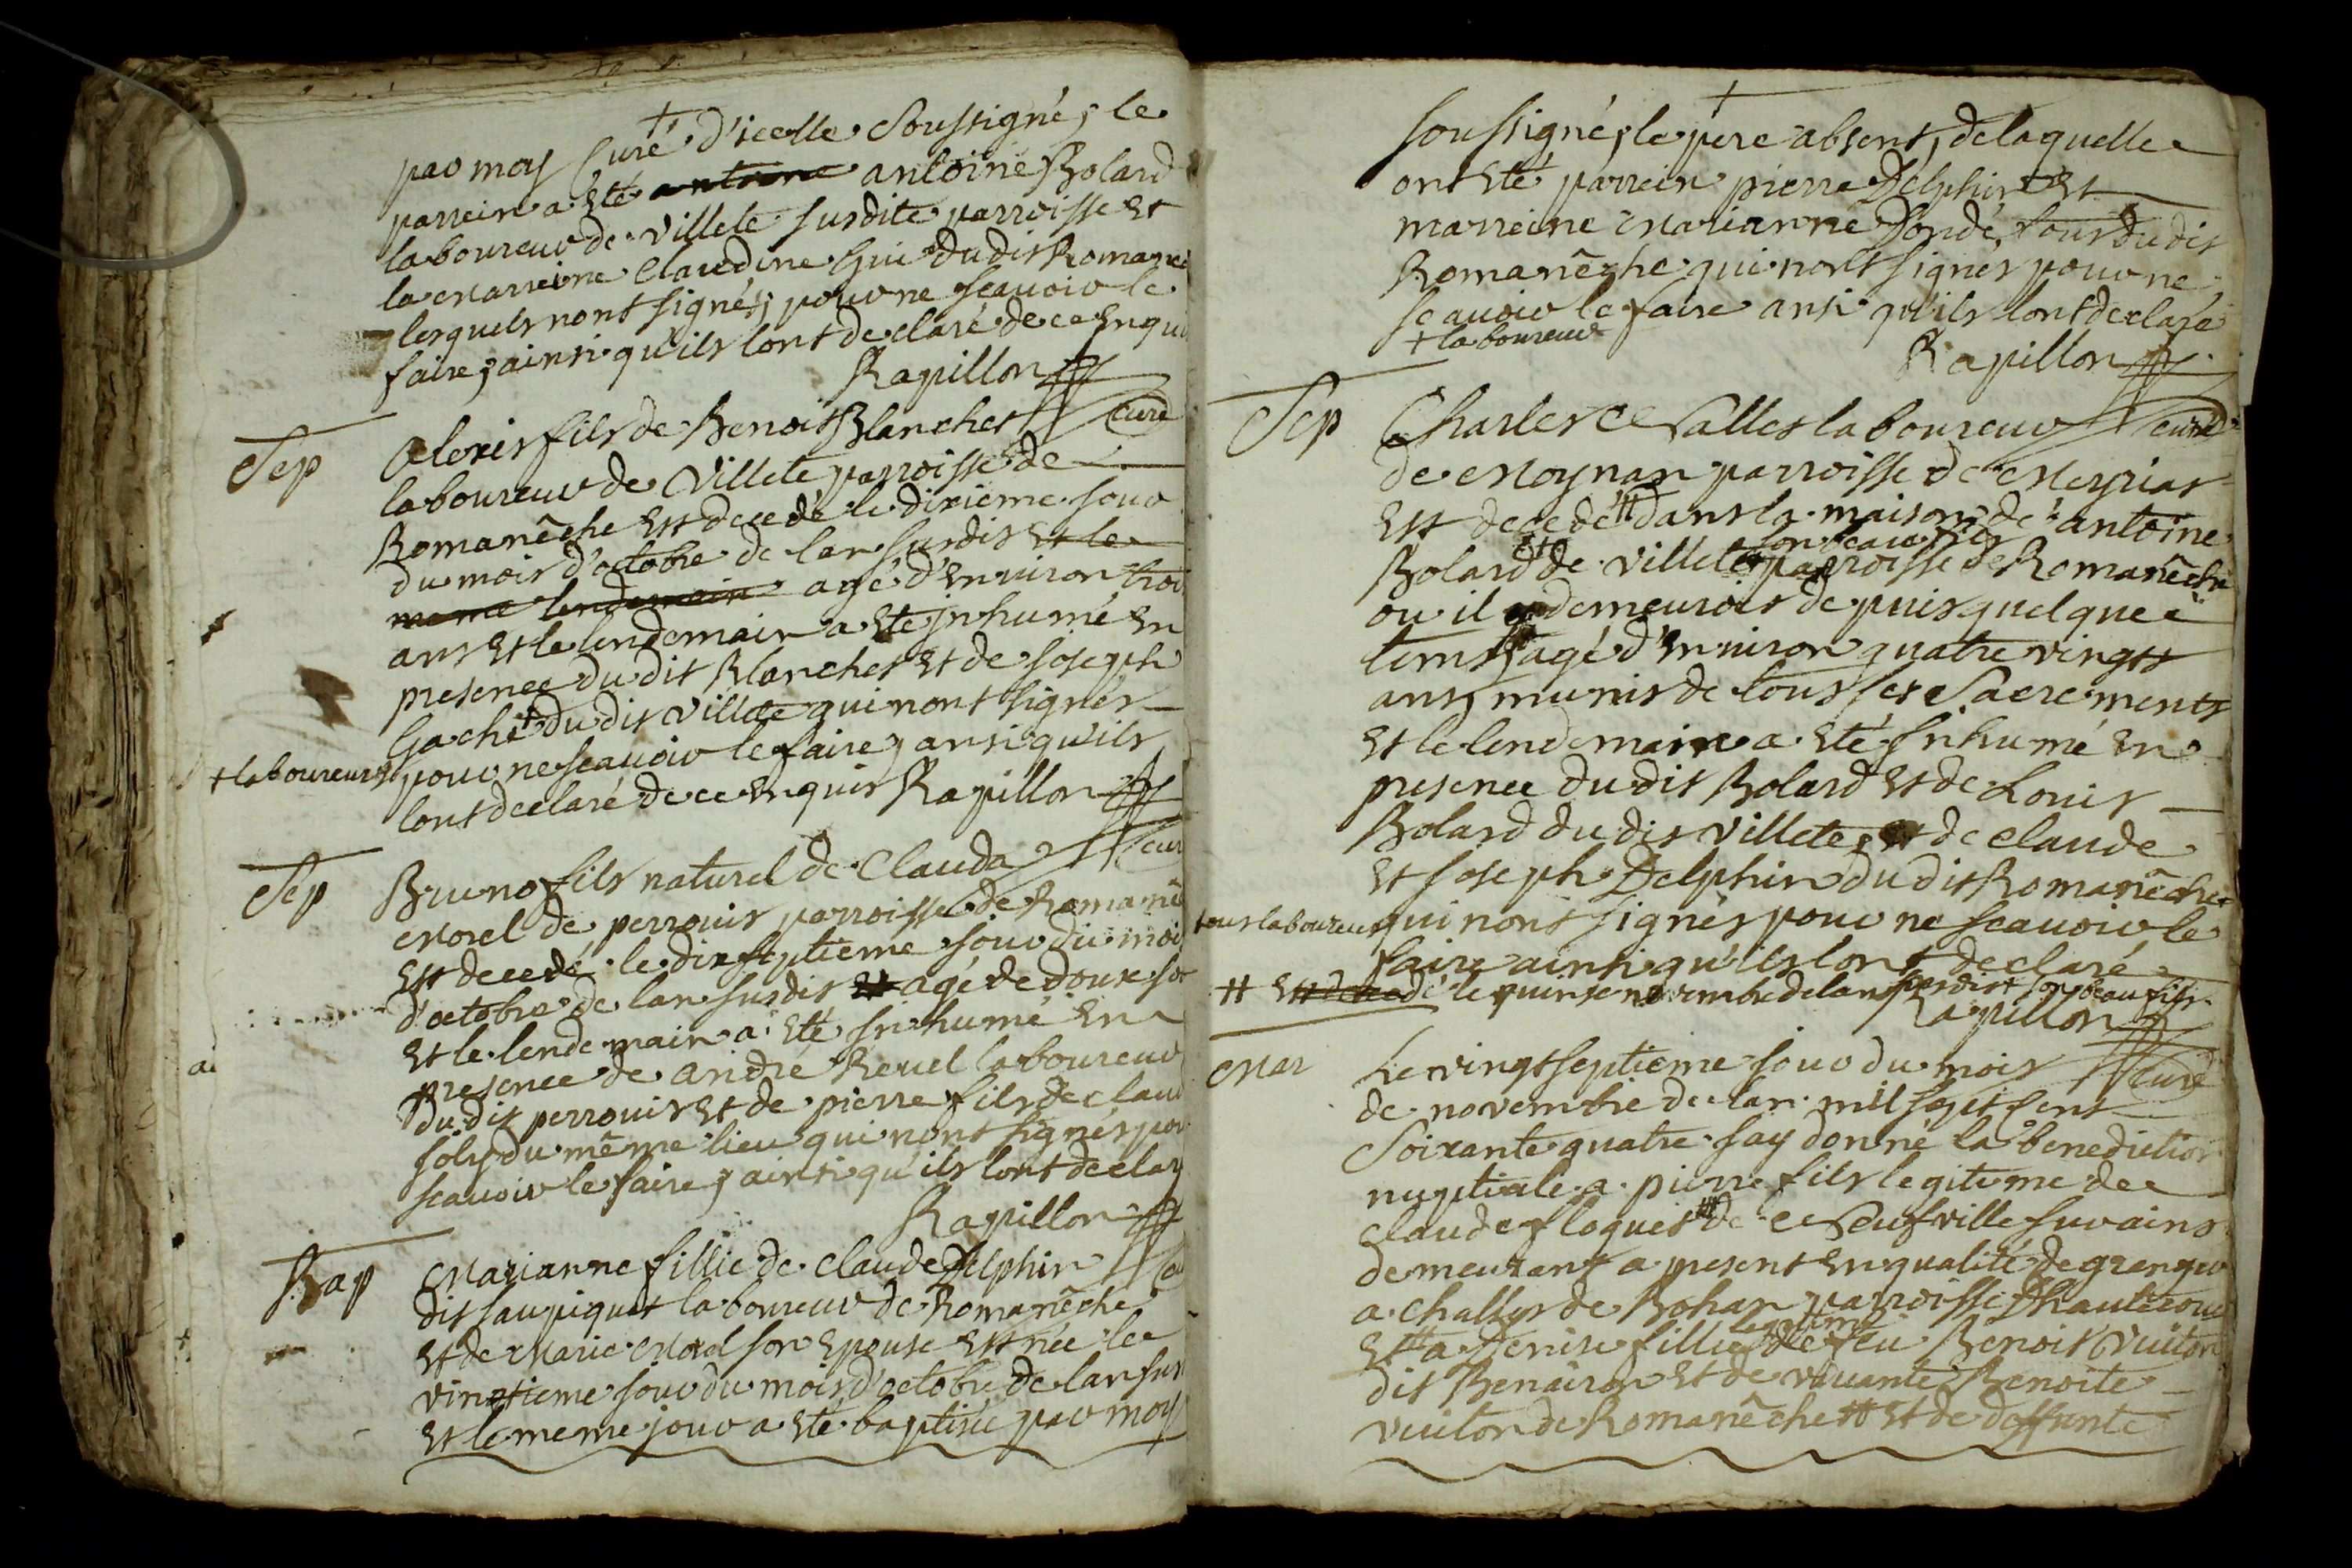 par moy Curé d'icelle Soussigné, le
parrein a eté antoine antoine Bolard
laboureur de villete susdite parroisse et
la marreine Claudine Gui du dit Romane
lesquels n'ont signés, pour ne scauoir le
faire, ainsi qu'ils l'ont declaré de ce enqui
Rapillon
curé
Sep
Alexis fils de Benoit Blanchet
laboureur de Villete parroisse de
Romanêche est decedé le dixieme jour
du mois d'octobre de l'an susdit et le
meme lendemain agé d'enuiron troi
ans et le lendemain a eté jnhumé en
presence du dit Blanchet et de joseph
Gache + du dit villete qui n'ont signés
+ laboureurs
pour ne scauoir le faire, ansi qu'ils
l'ont declaré de ce enquis Rapillon
cur
Sep
Bruno fils naturel de Clauda
Morel de perrouis parroisse de Romanê
est decedé le dix septieme jour du moi
d'octobre de l'an susdit et agé de douse jo
et le lendemain a eté jnhumé en
presence de andré Reuel laboureur
du dit perrouis et de pierre fils de clau
joly du même lieu qui n'ont signés pou
scauoir le faire, ainsi qu'ils l'ont declar
Rapillon
cu
Bap
Marianne fillie de claude Delphin
dit saupiquet laboureur de Romanêche
et de Marie Morel son epouse est née le
vingtieme jour du mois d'octobre de l'an sus
et le meme jour a eté baptisée par moy
soussigné, le pere absent, de laquelle
ont eté parrein pierre Delphin + et
marreine marianne Sondé, tous du dit
Romanêche qui n'ont signés pour ne
scauoir le faire ansi qu'ils l'ont declaré
+ laboureur
Rapillon
curé
Sep
Charles Salles laboureur
de Moynan parroisse de Meyriat
est decedé # dans la maison de antoine
son beau fils
Bolard de villete parroisse de Romanêche
ou il demeuroit depuis quelque
tems, agé d'enuiron quatre vingts
ans, munis de tous ses Sacrements
et le lendemain a eté jnhumé en
presence du dit Bolard et de Louis
Bolard du dit villete, et de claude
et joseph Delphin du dit Romanêche
tous laboureurs
qui n'ont signés pour ne scauoir le
faire ainsi qu'ils l'ont declaré
# est decedé le quinse novembre de l'an susdit son beau fils
Rapillon
curé
Mar
Le vingt septieme jour du mois
de novembre de l'an mil sept cent
Soixante quatre j'ay donné la benediction
nuptiale a pierre fils legitime de
claude floquet # de Neufville sur ains
demeurant a present en qualité de granger
a challes de Bohan parroisse d'hauterour
legitime
et a Denise fillie de feu Benoit Vuiton
dit Benairon et de viuante Benoite
vuiton de Romanêche # et de deffunte